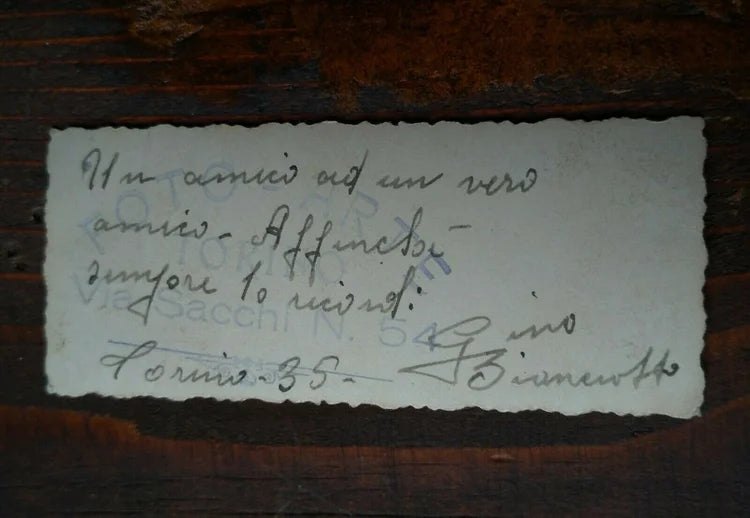 Un amico ad un vero
amico - Affinchè
sempre lo ricordi
Gino
Bianciotto
Torino - 35 -
FOTO - ARTE
TORINO
Via Sacchi N. 54